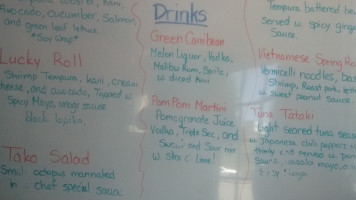 Avocado, Cucumber, Salmon,
and green leaf lettuce.
*Soy Wrap*
Lucky Roll
Shrimp Tempura, Kani, Cream
cheese, and avocado, Topped w
Spicy Mayo, wasabi sauce
black tapiko.
Tako Salad
Small octopus marinated
in ... chef special sauce
Drinks
Green Cambean
Melon Liquor, Vodka,
Malibu Rum, Sprite,
w sliced
Pom Pom Martini
Pomegranate Juice
Vodka, Triple Sec, and
Sweet and Sour mix
w Slice of Lime!
Tempura battered
Served w. spicy ginger
Sauce.
Vietnamese Spring Ro
Vermicelli noodles, bas
Shrimp, Roast pork, lett
w sweet peanut sauce
Tuna Tataki
Light seared tuna
w Japanese chili peppers
served w. pon
Sauce